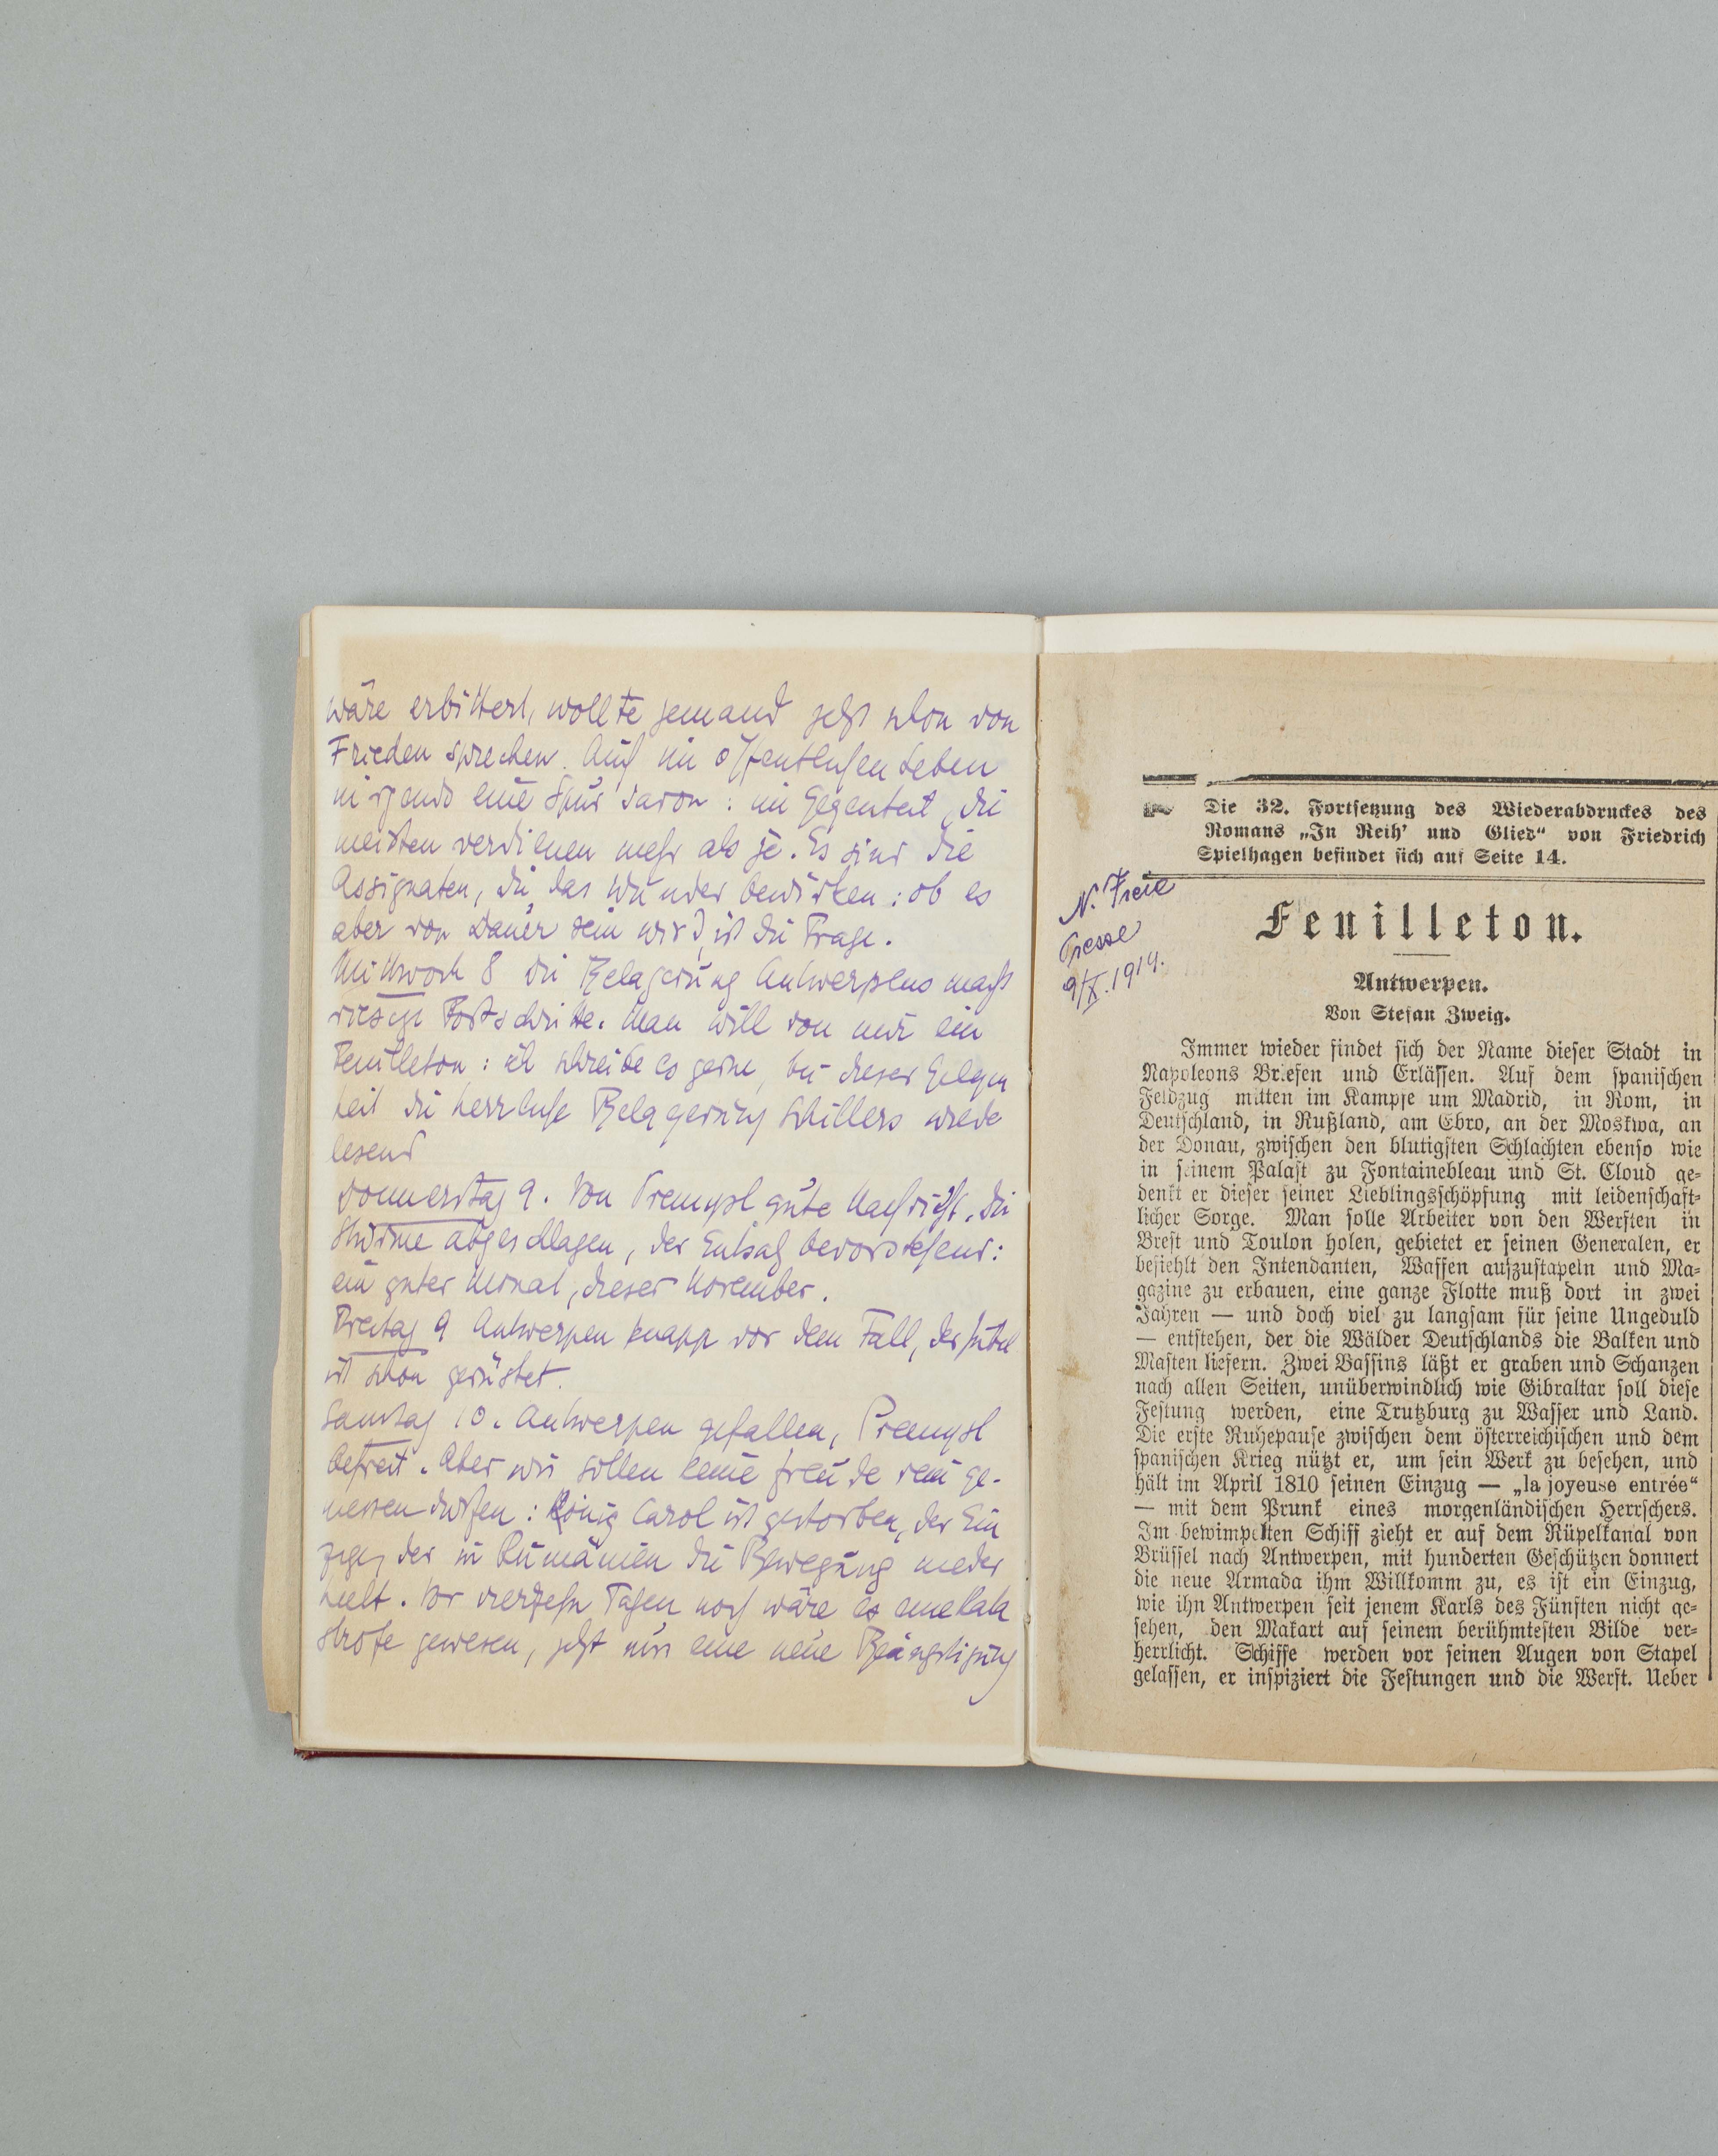 wäre erbittert, wollte jemand jetzt schon von
Frieden sprechen. Auch im öffentlichen Leben
nirgends eine Spur davon: im Gegenteil, die
meisten verdienen mehr als je. Es sind die
Assignaten, die das Wunder bewirken: ob es
aber von Dauer sein wird, ist die Frage.
Mittwoch 8 Die Belagerung Antwerpens macht
riesige Fortschritte. Man will von mir ein
Feuilleton: ich schreibe es gerne, bei dieser Gelegen
heit die herrliche Belagerung Schillers wieder
lesend
Donnerstag 9. Von Premysl gute Nachricht, die
Stürme abgeschlagen, der Entsatz bevorstehend:
ein guter Monat, dieser November.
Freitag 9 Antwerpen knapp vor dem Fall, der Jubel
ist schon gerüstet.
Samstag 10. Antwerpen gefallen, Premysl
befreit. Aber wir sollen keine Freude rein ge-
niessen dürfen: König Carol ist gestorben, der Ein
zige, der in Rumänien die Bewegung nieder
hielt. Vor vierzehn Tagen noch wäre es eine Kata
strofe gewesen, jetzt nur eine neue Beängstigung
N. Freie
Presse
9/X. 1914.
Die 32. Fortsetzung des Wiederabdruckes des
Romans „In Reih' und Glied“ von Friedrich
Spielhagen befindet sich auf Seite 14.
Feuilleton.
Antwerpen.
Von Stefan Zweig.
Immer wieder findet sich der Name dieser Stadt in
Napoleons Briefen und Erlässen. Auf dem spanischen
Feldzug mitten im Kampfe um Madrid, in Rom, in
Deutschland, in Rußland, am Ebro, an der Moskwa, an
der Donau, zwischen den blutigsten Schlachten ebenso wie
in seinem Palast zu Fontainebleau und St. Cloud ge-
denkt er dieser seiner Lieblingsschöpfung mit leidenschaft-
licher Sorge. Man solle Arbeiter von den Werften in
Brest und Toulon holen, gebietet er seinen Generalen, er
befiehlt den Intendanten, Waffen aufzustapeln und Ma-
gazine zu erbauen, eine ganze Flotte muß dort in zwei
Jahren — und doch viel zu langsam für seine Ungeduld
— entstehen, der die Wälder Deutschlands die Balken und
Masten liefern. Zwei Bassins läßt er graben und Schanzen
nach allen Seiten, unüberwindlich wie Gibraltar soll diese
Festung werden, eine Trutzburg zu Wasser und Land.
Die erste Ruhepause zwischen dem österreichischen und dem
spanischen Krieg nützt er, um sein Werk zu besehen, und
hält im April 1810 seinen Einzug — „la joyeuse entrée“
— mit dem Prunk eines morgenländischen Herrschers.
Im bewimpelten Schiff zieht er auf dem Rüpelkanal von
Brüssel nach Antwerpen, mit hunderten Geschützen donnert
die neue Armada ihm Willkomm zu, es ist ein Einzug,
wie ihn Antwerpen seit jenem Karls des Fünften nicht ge-
sehen, den Makart auf seinem berühmtesten Bilde ver-
herrlicht. Schiffe werden vor seinen Augen von Stapel
gelassen, er inspiziert die Festungen und die Werft. Ueber